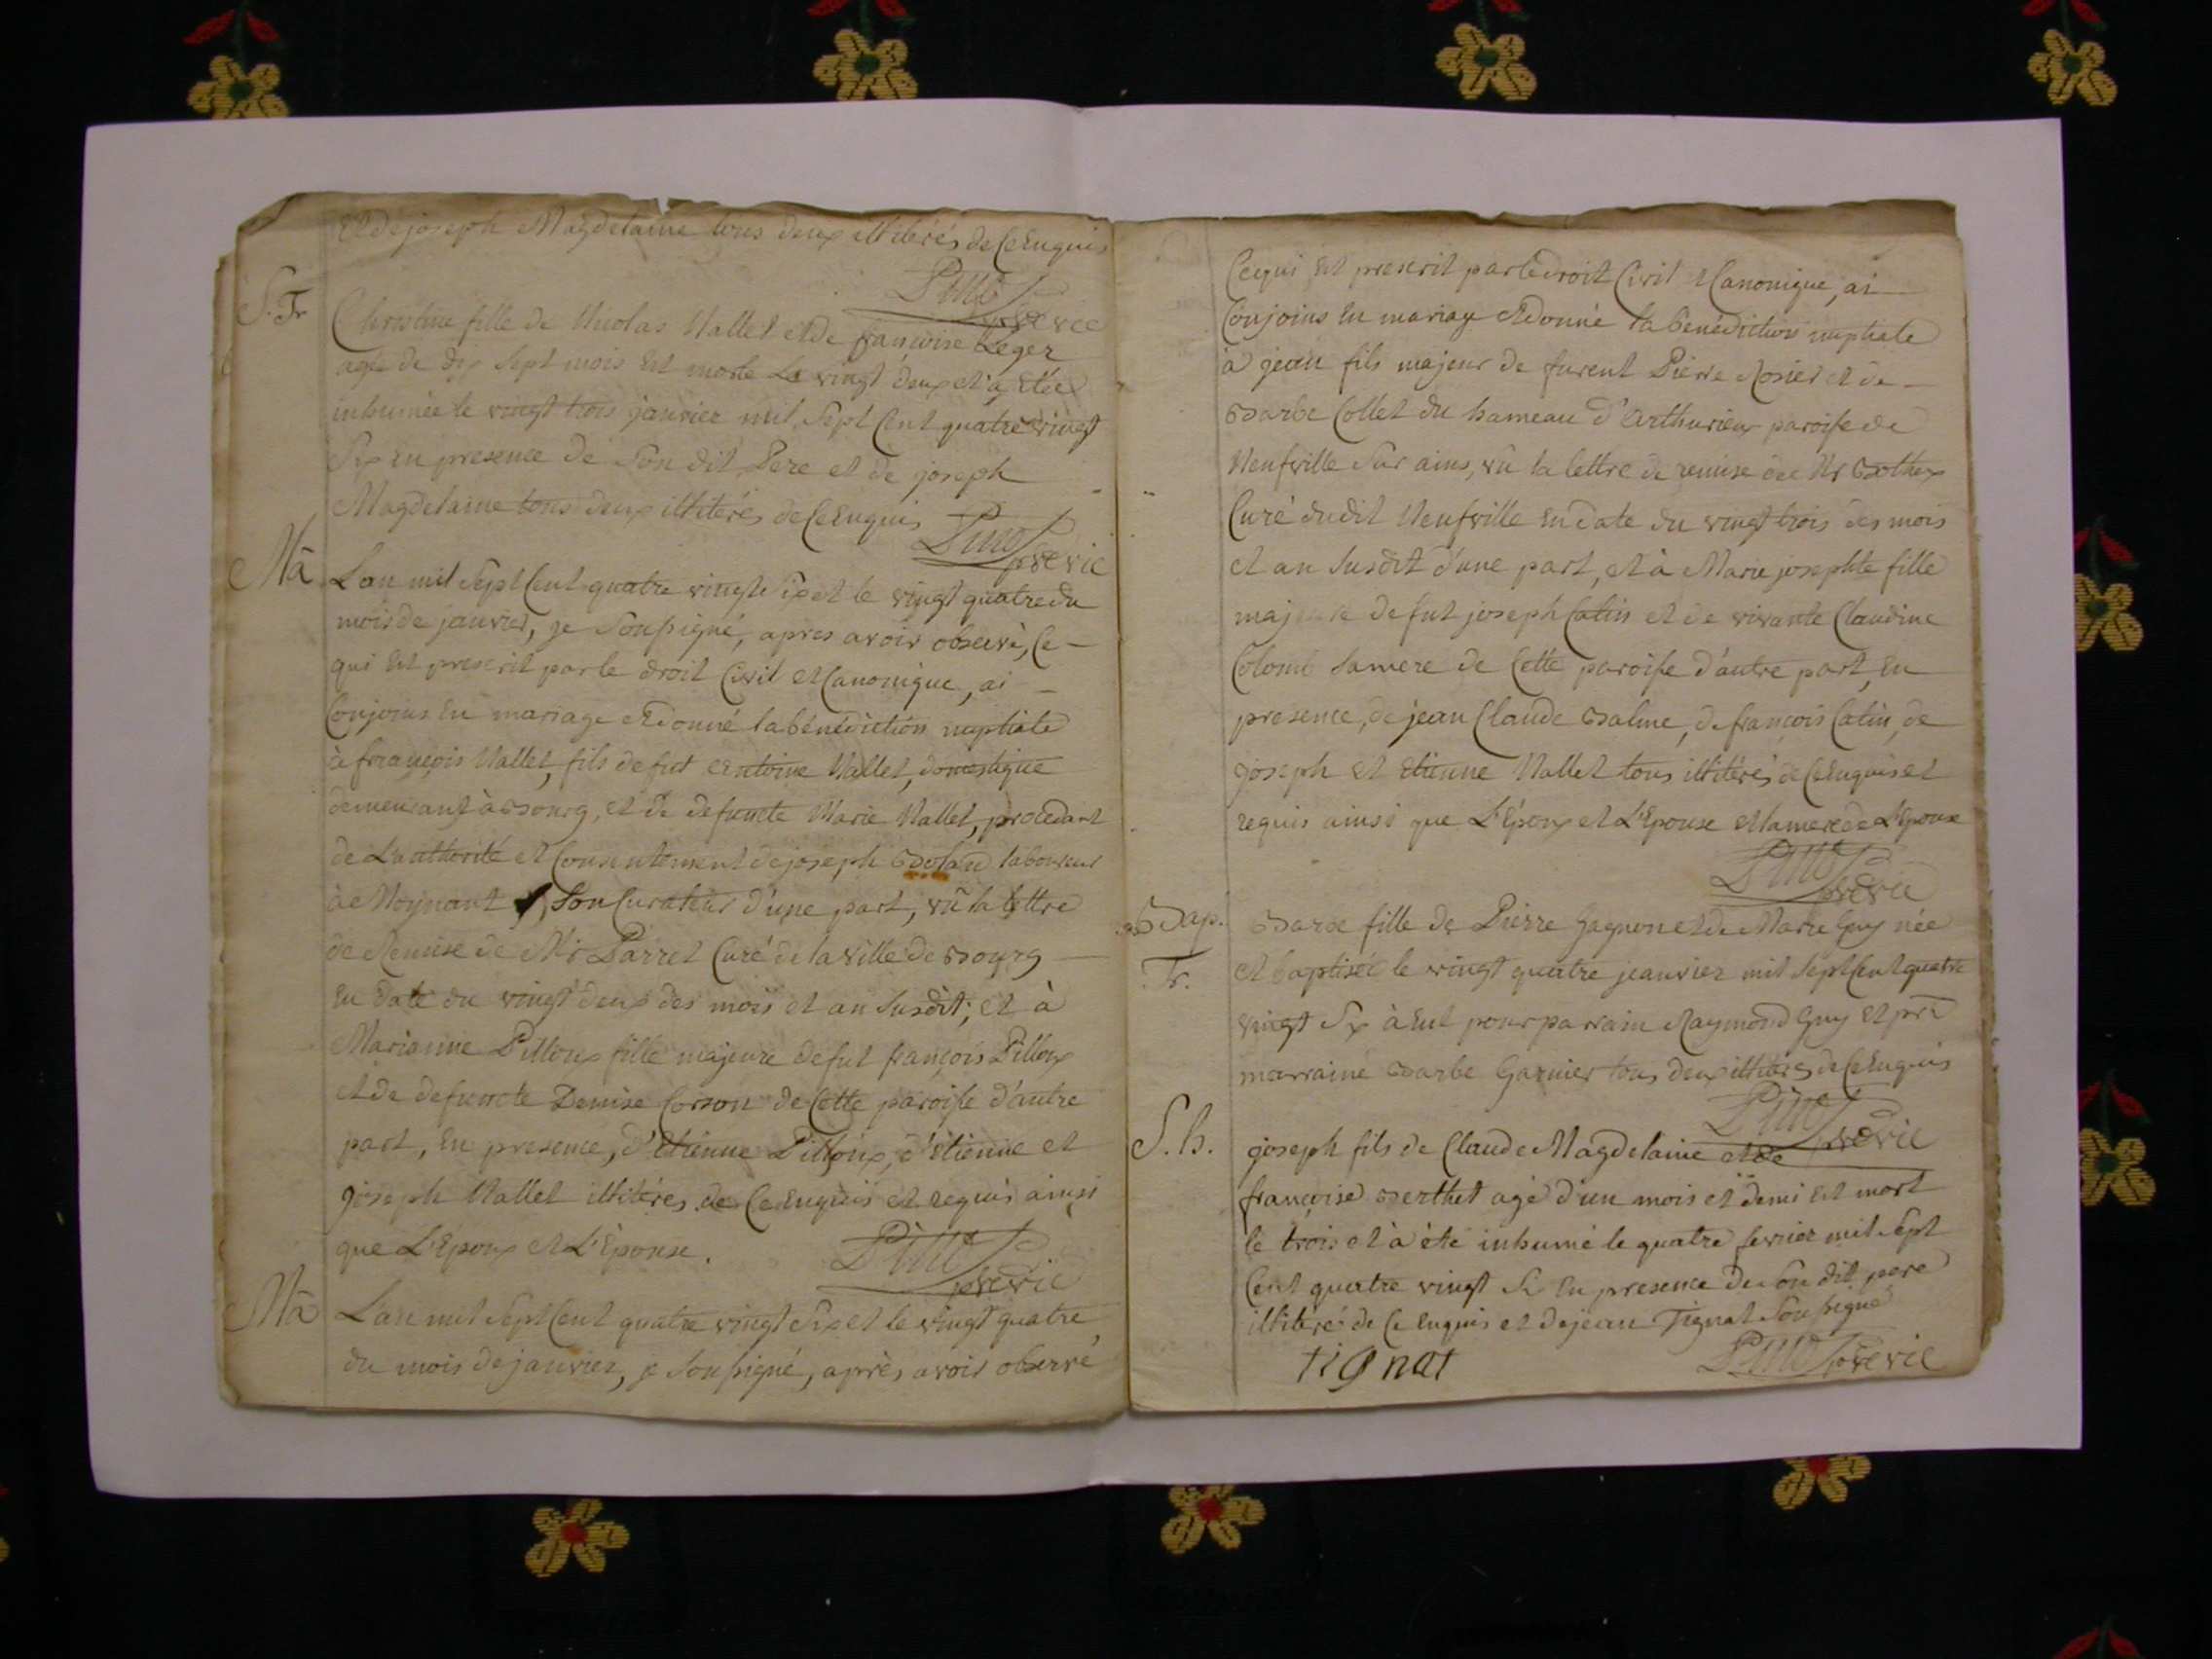 Et de joseph Magdelaine tous deux illiterés de Ce Enquis
S. Fr
Christine fille de Nicolas Nallet et de francoise Leger
agée de dix Sept mois Est morte Le vingt deux et a Etée
inhumée le vingt trois janvier mil Sept Cent quatre vingt
Six En presence de Son dit Pere et de joseph
Magdelaine tous deux illiterés de Ce Enquis
Ma
Lan mil Sept Cent quatre vingts Six et le vingt quatre du
mois de janvier, je Soussigné, apres avoir observé, Ce
qui Est prescrit par le droit Civil et Canonique, ai
Conjoins En mariage et donné la bénédiction nuptiale
à françois Nallet, fils de fut Antoine Nallet, domestique
demeurant à Bourg, et de defuncte Marie Nallet, procedant
de L'authorité et Consentement de joseph laboureur
à Son Curateur d'une part, vû la lettre
de Remise de Mr Parret Curé de la ville de Bourg
En date du vingt deux des mois et an Susdit; et à
Marianne Pilloux fille majeure de fut françois Pilloux
et de defuncte Denise Corson de Cette paroisse d'autre
part, En presence, d'Etienne Pilloux, d'Etienne et
joseph Nallet illiteres de Ce Enquis et requis ainsi
que L'Epoux et L'Epouse.
Ma
Lan mil Sept Cent quatre vingt Six et le vingt quatre
du mois de janvier, je Soussigné, après avoir observé
Ce qui Est prescrit par le droit Civil et Canonique, ai
Conjoins En mariage et donné la bénédiction nuptiale
à jean fils majeur de furent Pierre Rosier et de
Barbe Collet du hameau d'Arthurieux paroisse de
Neufville Sur ains, vû la lettre de remise de Mr
Curé du dit Neufville En date du vingt trois des mois
et an Susdit d'une part, et à Marie josephte fille
majeure de fut joseph Catin et de vivante Claudine
Colomb Sa mere de Cette paroisse d'autre part, En
presence, de jean Claude Balme, de françois Catin, de
joseph et Etienne Nallet tous illitérés de Ce Enquis et
requis ainsi que L'Epoux et L'Epouse et la mere de L'Epouse
Bap.
Fr.
Barbe fille de Pierre Gagnon et de Marie Guy née
et baptisée le vingt quatre jeanvier mil Sept Cent quatre
vingt Six à Eut pour parrain Raymond Guy et pr
marraine Barbe Garnier tous deux illiteres de Ce Enquis
S. h.
joseph fils de Claude Magdelaine et de
françoise Berthet agé d'un mois et demi Est mort
le trois et à été inhumé le quatre fevrier mil Sept
Cent quatre vingt Six En presence de Son dit pere
illiteré de Ce Enquis et de jean Tignat Soussigné
tignat